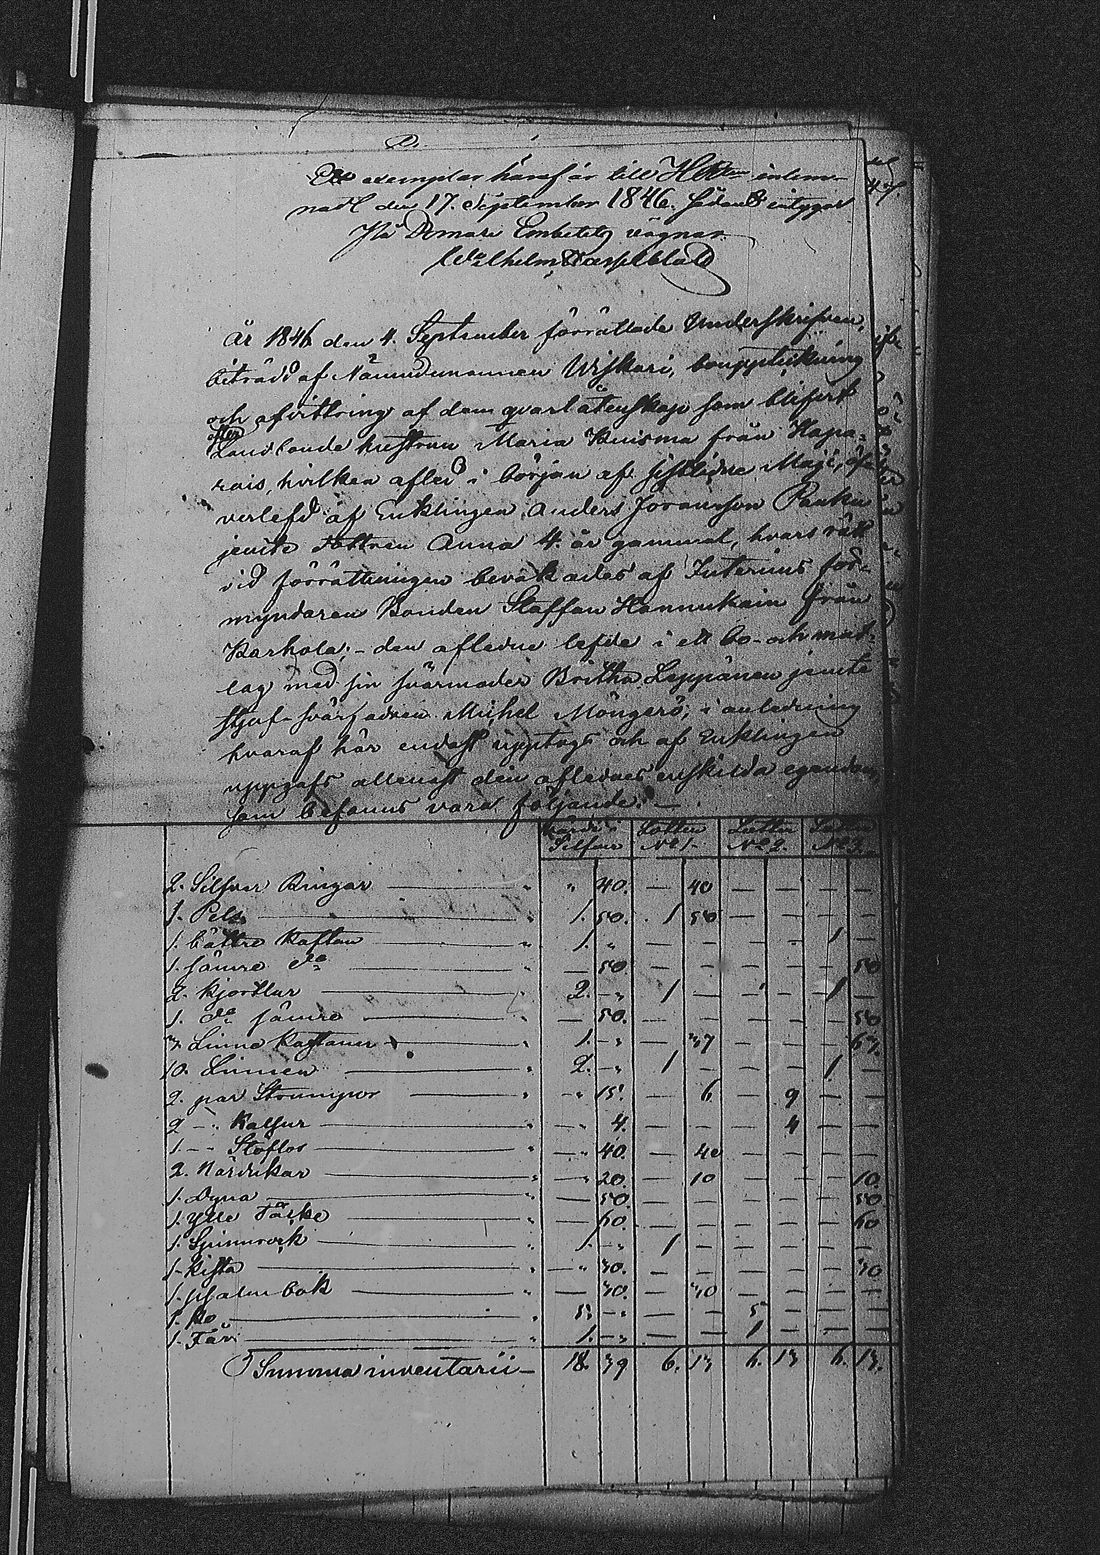 exemplar häraf är till HRtten inlem-
nadt den 17. September 1846. sådant intygar
På Domare Embetets vägnar.
Wilhelm Hasselblatt
År 1846 den 4. September förrättade Underskrifven,
biträdd af Nämndemannen Uiskari, bouppteckning
och afvittring af den qvarlåtenskap som blifvit
efter
Landbonde hustrun Maria Kuisma från Hapa-
rais, hvilken afled i början af sistlidne Maji, öf-
verlefd af Enklingen Anders Joransson Paukku
jemte dottren Anna 4. år gammal, hvars rätt
vid förrättningen bevakades af Interims för-
myndaren Bonden Staffan Hannukain från
Karhola; - den aflidne lefde i ett bo- och mat-
lag med sin svärmoder Britha Leppänen jemte
styf-svärfadren Mickel Möngerö; i anledning
hvaraf här endast upptogs och af Enklingen
uppgafs allenast den aflidnes enskilda egendom,
som befanns vara följande: —
Värde i Silfver Lotten No 1. Lotten No 2. Lotten No 3.
2. Silfver Ringar — " " 40. — 40 — — — —
1. Pels — " 1. 50. 1 50 — — — —
1. bättre Kaftan — " 1. " — — — - 1 —
1. sämre do — " — 50. — — — — — 50
2. Kjortlar — " 2. -" 1 — - — 1 —
1. do sämre — " — 50. — — — — — 50
3. Linne Kaftaner — " 1. -" — 37 — — — 63.
10. Linnen — " 2. -" 1 — — — 1 —
2. par Strumpor — " -" 15. — 6 — 9 — —
2 -" Kalsur — " -" 4. — — — 4 — —
1 -- Stöflor — " -" 40. — 40 — — — —
2. Hårdukar — " -" 20. — 10 — — — 10.
1. Dyna — " — 50. — — — — — 50.
1. Ylle Täcke — " — 60. — — — — — 60
1. Spinnrock — " 1. -" 1 — — — — —
1. Kista — " -" 30. — — — — — 30
1. psalmbok — " — 30. — 30 — — — —
1. Ko — " 5. -" — — 5 — — —
1. Får — " 1. -" — — 1 — — —
Summa inventarii — 18. 39 6. 13 6. 13 6. 13.